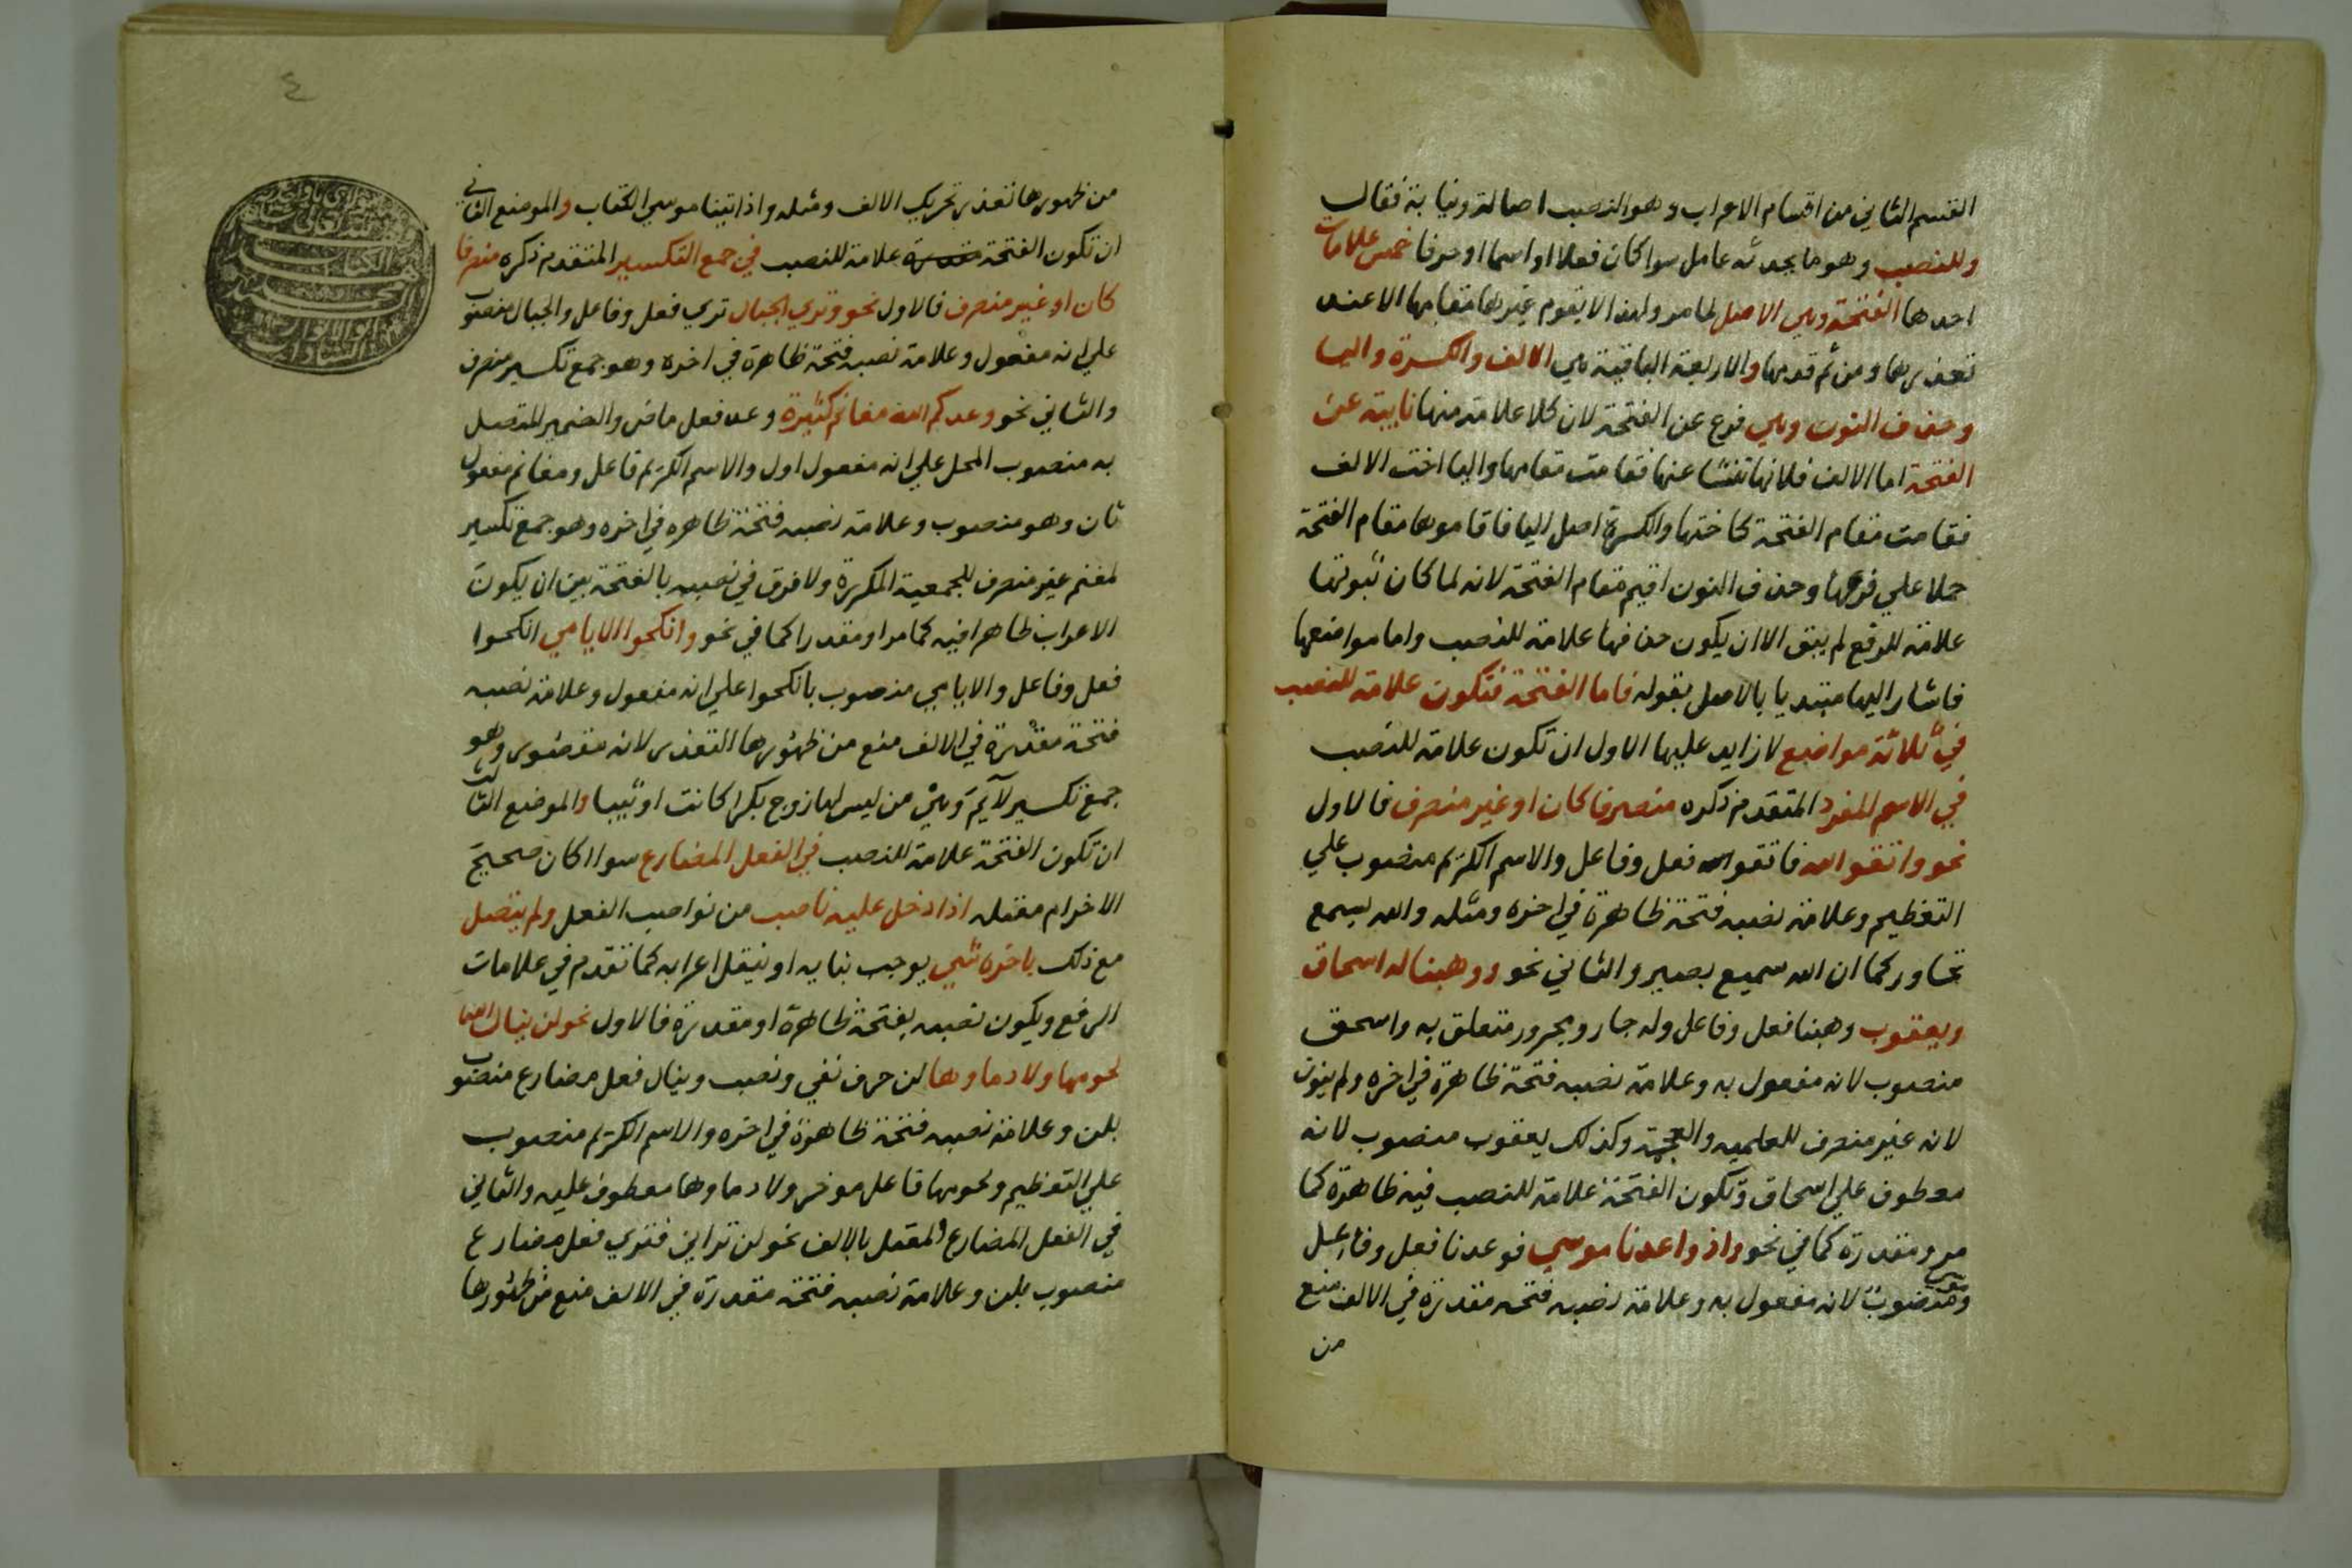 القسم الثاني من اقسام الاعراب وهو النصب اصالة ونيابة فقال
وللنصب وهو ما يحدثه عامل سوا كان فعلا او اسما او حرفا خمس علامات
احدها الفتحة وهي الاصل لما مر ولهذا لا يقوم غيرها مقامها الا عند
تعذرها ومن ثم قدمها والاربعة الباقية هي الالف والكسرة واليا
وحذف النون وهي فرع عن الفتحة لان كلا علامة منها نايبة عن
الفتحة اما الالف فلانها تنشا عنها فقامت مقامها واليا اخت الالف
فقامت مقام الفتحة كاختها والكسرة اصل اليا فاقاموها مقام الفتحة
حملا علي فرعها وحذف النون اقيم مقام الفتحة لانه لما كان ثبوتها
علامة للرفع لم يبق الا ان يكون حذفها علامة للنصب واما مواضعها
فاشار اليها مبتديا بالاصل بقوله فاما الفتحة فتكون علامة للنصب
في ثلاثة مواضع لا زايد عليها الاول ان تكون علامة للنصب
في الاسم المفرد المتقدم ذكره منصرفا كان او غير منصرف فالاول
نحو واتقوا الله فاتقوا فعل وفاعل والاسم الكريم منصوب علي
التعظيم وعلامة نصبه فتحة ظاهرة في اخره ومثله والله يسمع
تحاوركما ان الله سميع بصير والثاني نحو ووهبنا له اسحاق
ويعقوب وهبنا فعل وفاعل وله جار ومجرور متعلق به واسحق
منصوب لانه مفعول به وعلامة نصبه فتحة ظاهرة في اخره ولم ينون
لانه غير منصرف للعلميه والعجمة وكذلك يعقوب منصوب لانه
معطوف علي اسحاق وتكون الفتحة علامة للنصب فيه ظاهرة كما
مر ومقدرة كما في نحو واذ واعدنا موسي فوعدنا فعل وفاعل
وموسي منصوب لانه مفعول به وعلامة نصبه فتحه مقدرة في الالف منع
من
٤
من ظهورها تعذر تحريك الالف ومثله واذ اتينا موسي الكتاب والموضع الثاني
ان تكون الفتحة علامة للنصب في جمع التكسير المتقدم ذكره منصرفا
كان او غير منصرف فالاول نحو وتري الجبال تري فعل وفاعل والجبال منصوب
علي انه مفعول وعلامة نصبه فتحة ظاهرة في اخره وهو جمع تكسير منصرف
والثاني نحو وعدكم الله مغانم كثيرة وعد فعل ماض والضمير المتصل
به منصوب المحل علي انه مفعول اول والاسم الكريم فاعل ومغانم مفعول
ثان وهو منصوب وعلامة نصبه فتحة ظاهره في اخره وهو جمع تكسير
لمغنم غير منصرف للجمعية المكررة ولا فرق في نصبه بالفتحة بين ان يكون
الاعراب ظاهرا فيه كما مر او مقدرا كما في نحو وانكحوا الايامي انكحوا
فعل وفاعل والايامي منصوب بانكحوا علي انه مفعول وعلامة نصبه
فتحة مقدرة في الالف منع من ظهورها التعذر لانه مقصور وهو
جمع تكسير لايم وهي من ليس لها زوج بكرا كانت او ثيبا والموضع الثالث
ان تكون الفتحة علامة للنصب في الفعل المضارع سوا كان صحيح
الاخر ام معتله اذا دخل عليه ناصب من نواصب الفعل ولم يتصل
مع ذلك باخره شي يوجب بنايه او ينقل اعرابه كما تقدم في علامات
الرفع ويكون نصبه بفتحة ظاهرة او مقدرة فالاول نحو لن ينال الله
لحومها ولا دماوها لن حرف نفي ونصب وينال فعل مضارع منصوب
بلن وعلامة نصبه فتحة ظاهرة في اخره والاسم الكريم منصوب
علي التعظيم ولحومها فاعل موخر ولا دماوها معطوف عليه والثاني
في الفعل المضارع المعتل بالالف نحو لن تراني فتري فعل مضارع
منصوب بلن وعلامة نصبه فتحة مقدرة في الالف منع من ظهورها